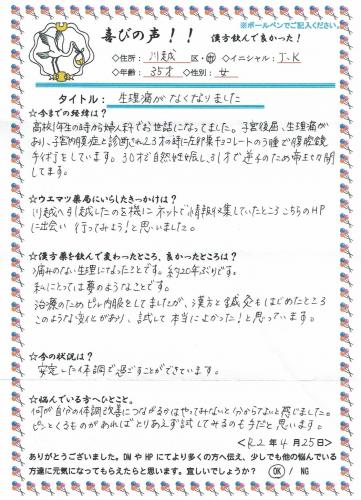 ※ボールペンでご記入ください。
喜びの声!! 漢方飲んで良かった!
◇住所: 川越 区・市 ◇イニシャル: J.K
◇年齢: 35才 ◇性別: 女
タイトル: 生理痛がなくなりました
☆今までの経緯は?
高校1年生の時から婦人科でお世話になってました。子宮後屈、生理痛が
あり、子宮内膜症と診断され23才の時に左卵巣チョコレートのう腫で腹腔鏡
手術をしています。30才で自然妊娠し31才で逆子のため帝王切開
してます。
☆ウエマツ薬局にいらしたきっかけは?
川越へ引越したのを機にネットで情報収集していたところこちらのHP
に出会い行ってみよう!と思いました。
☆漢方薬を飲んで変わったところ、良かったところは?
痛みのない生理になったことです。約20年ぶりです。
私にとっては夢のようなことです。
治療のためピル内服をしてましたが、漢方と鍼灸もはじめたところ
このような変化があり、試して本当によかった!と思っています。
☆今の状況は?
安定した体調で過ごすことができています。
☆悩んでいる方へひとこと。
何が自分の体調改善につながるかはやってみないと分からないと感じました。
ピンとくるものがあればとりあえず試してみるのも手だと思います。
<R2年4月25日>
ありがとうございました。DMやHPにてより多くの方へ伝え、少しでも悩んでいる
方達に元気になってもらえたらと思います。宜しいでしょうか? OK / NG